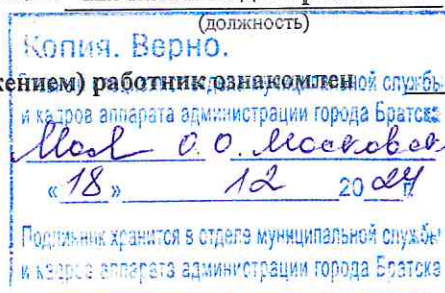 (должность)
Копия. Верно.
жением) работник ознакомлен ной служб
и кадров аппарата администрации города Братска
О.О. Московск
«18» 12 2024 г.
Подлинник хранится в отделе муниципальной служб
и кадров аппарата администрации города Братска